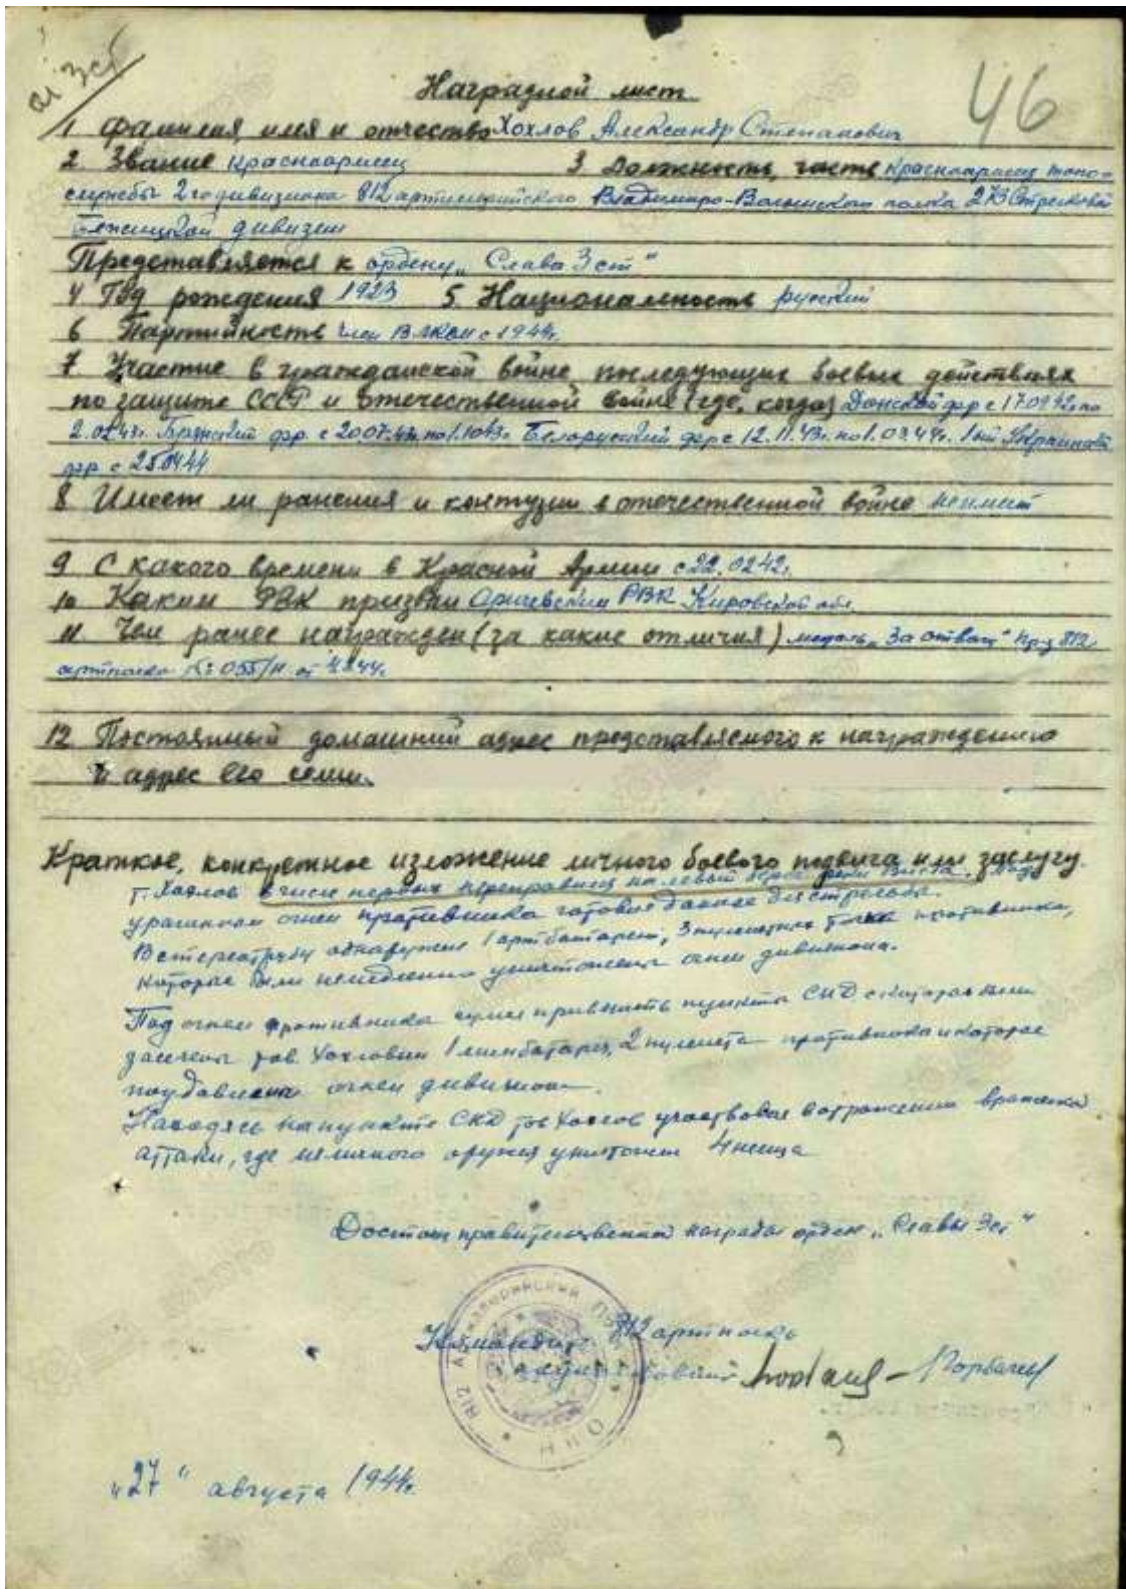 Наградной лист
46
1 Фамилия, имя и отчество Хохлов Александр Степанович
2. Звание красноармеец 3 Должность, часть красноармеец топо-
службы 2го дивизиона 812 артиллерийского Владимиро-Волынского полка 273 Стрелковой
Бежицкой дивизии
Представляется к ордену „Слава 3 ст"
4 Год рождения 1923 5 Национальность русский
6 Партийность член ВЛКСМ с 1944г.
7 Участие в гражданской войне последующих боевых действиях
по защите СССР и отечественной войне (где, когда) Донской фр с 17.09.42г по
2.02.43г. Брянский фр. с 20.07.43г. по 1.10.43г. Белорусский фр с 12.11.43г. по 1.03.44г. 1ый Украинский
фр с 25.04.44
8 Имеет ли ранения и контузии в отечественной войне не имеет
9 С какого времени в Красной Армии с 22.02.42г.
10 Каким РВК призван Оричевским РВК Кировской обл.
11. Чем ранее награжден (за какие отличия) медаль „За отвагу" Пр-з 812
артполка № 055/н от
12 Постоянный домашний адрес представляемого к награждению
и адрес его семьи.
Краткое, конкретное изложение личного боевого подвига или заслуги.
Т. Хохлов в числе первых переправился на левый берег реки Висла. Под
ураганным огнем противника готовил данные для стрельбы.
В стереотрубу обнаружил 1 артбатарею, 3 пулеметных точки противника,
которые были немедленно уничтожены огнем дивизиона.
Под огнем противника сумел привязать пункты СНД с которых были
засечены тов. Хохловым 1 минбатарея, 2 пулемета противника и которые
подавлены огнем дивизиона.
Находясь на пункте СНД тов Хохлов участвовал в отражении вражеской
аттаки, где из личного оружия уничтожил 4 немца
Достоин правительственной награды орден „Славы 3 ст"
Командир 812 артполка
Горбачев
812 Артиллерийский Полк
„27" августа 1944г.